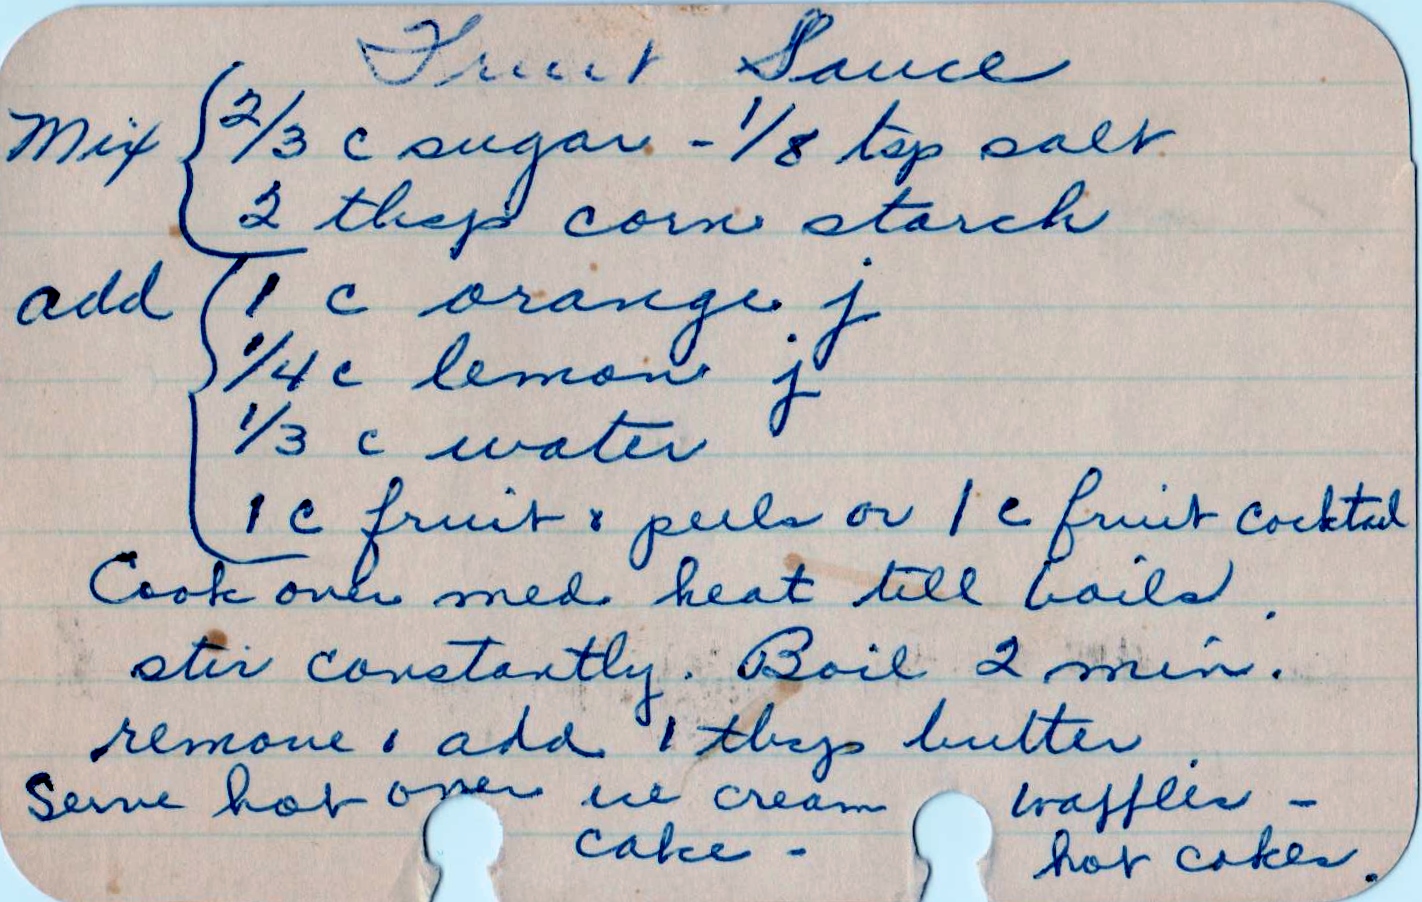 Fruit Sauce
Mix { 2/3 c sugar - 1/8 tsp salt
2 tbsp corn starch
add { 1 c orange j
1/4 c lemon j
1/3 c water
1 c fruit & peels or 1 c fruit cocktail
Cook over med heat till boils.
stir constantly. Boil 2 min.
remove & add 1 tbsp butter
Serve hot over ice cream waffles -
cake - hot cakes.